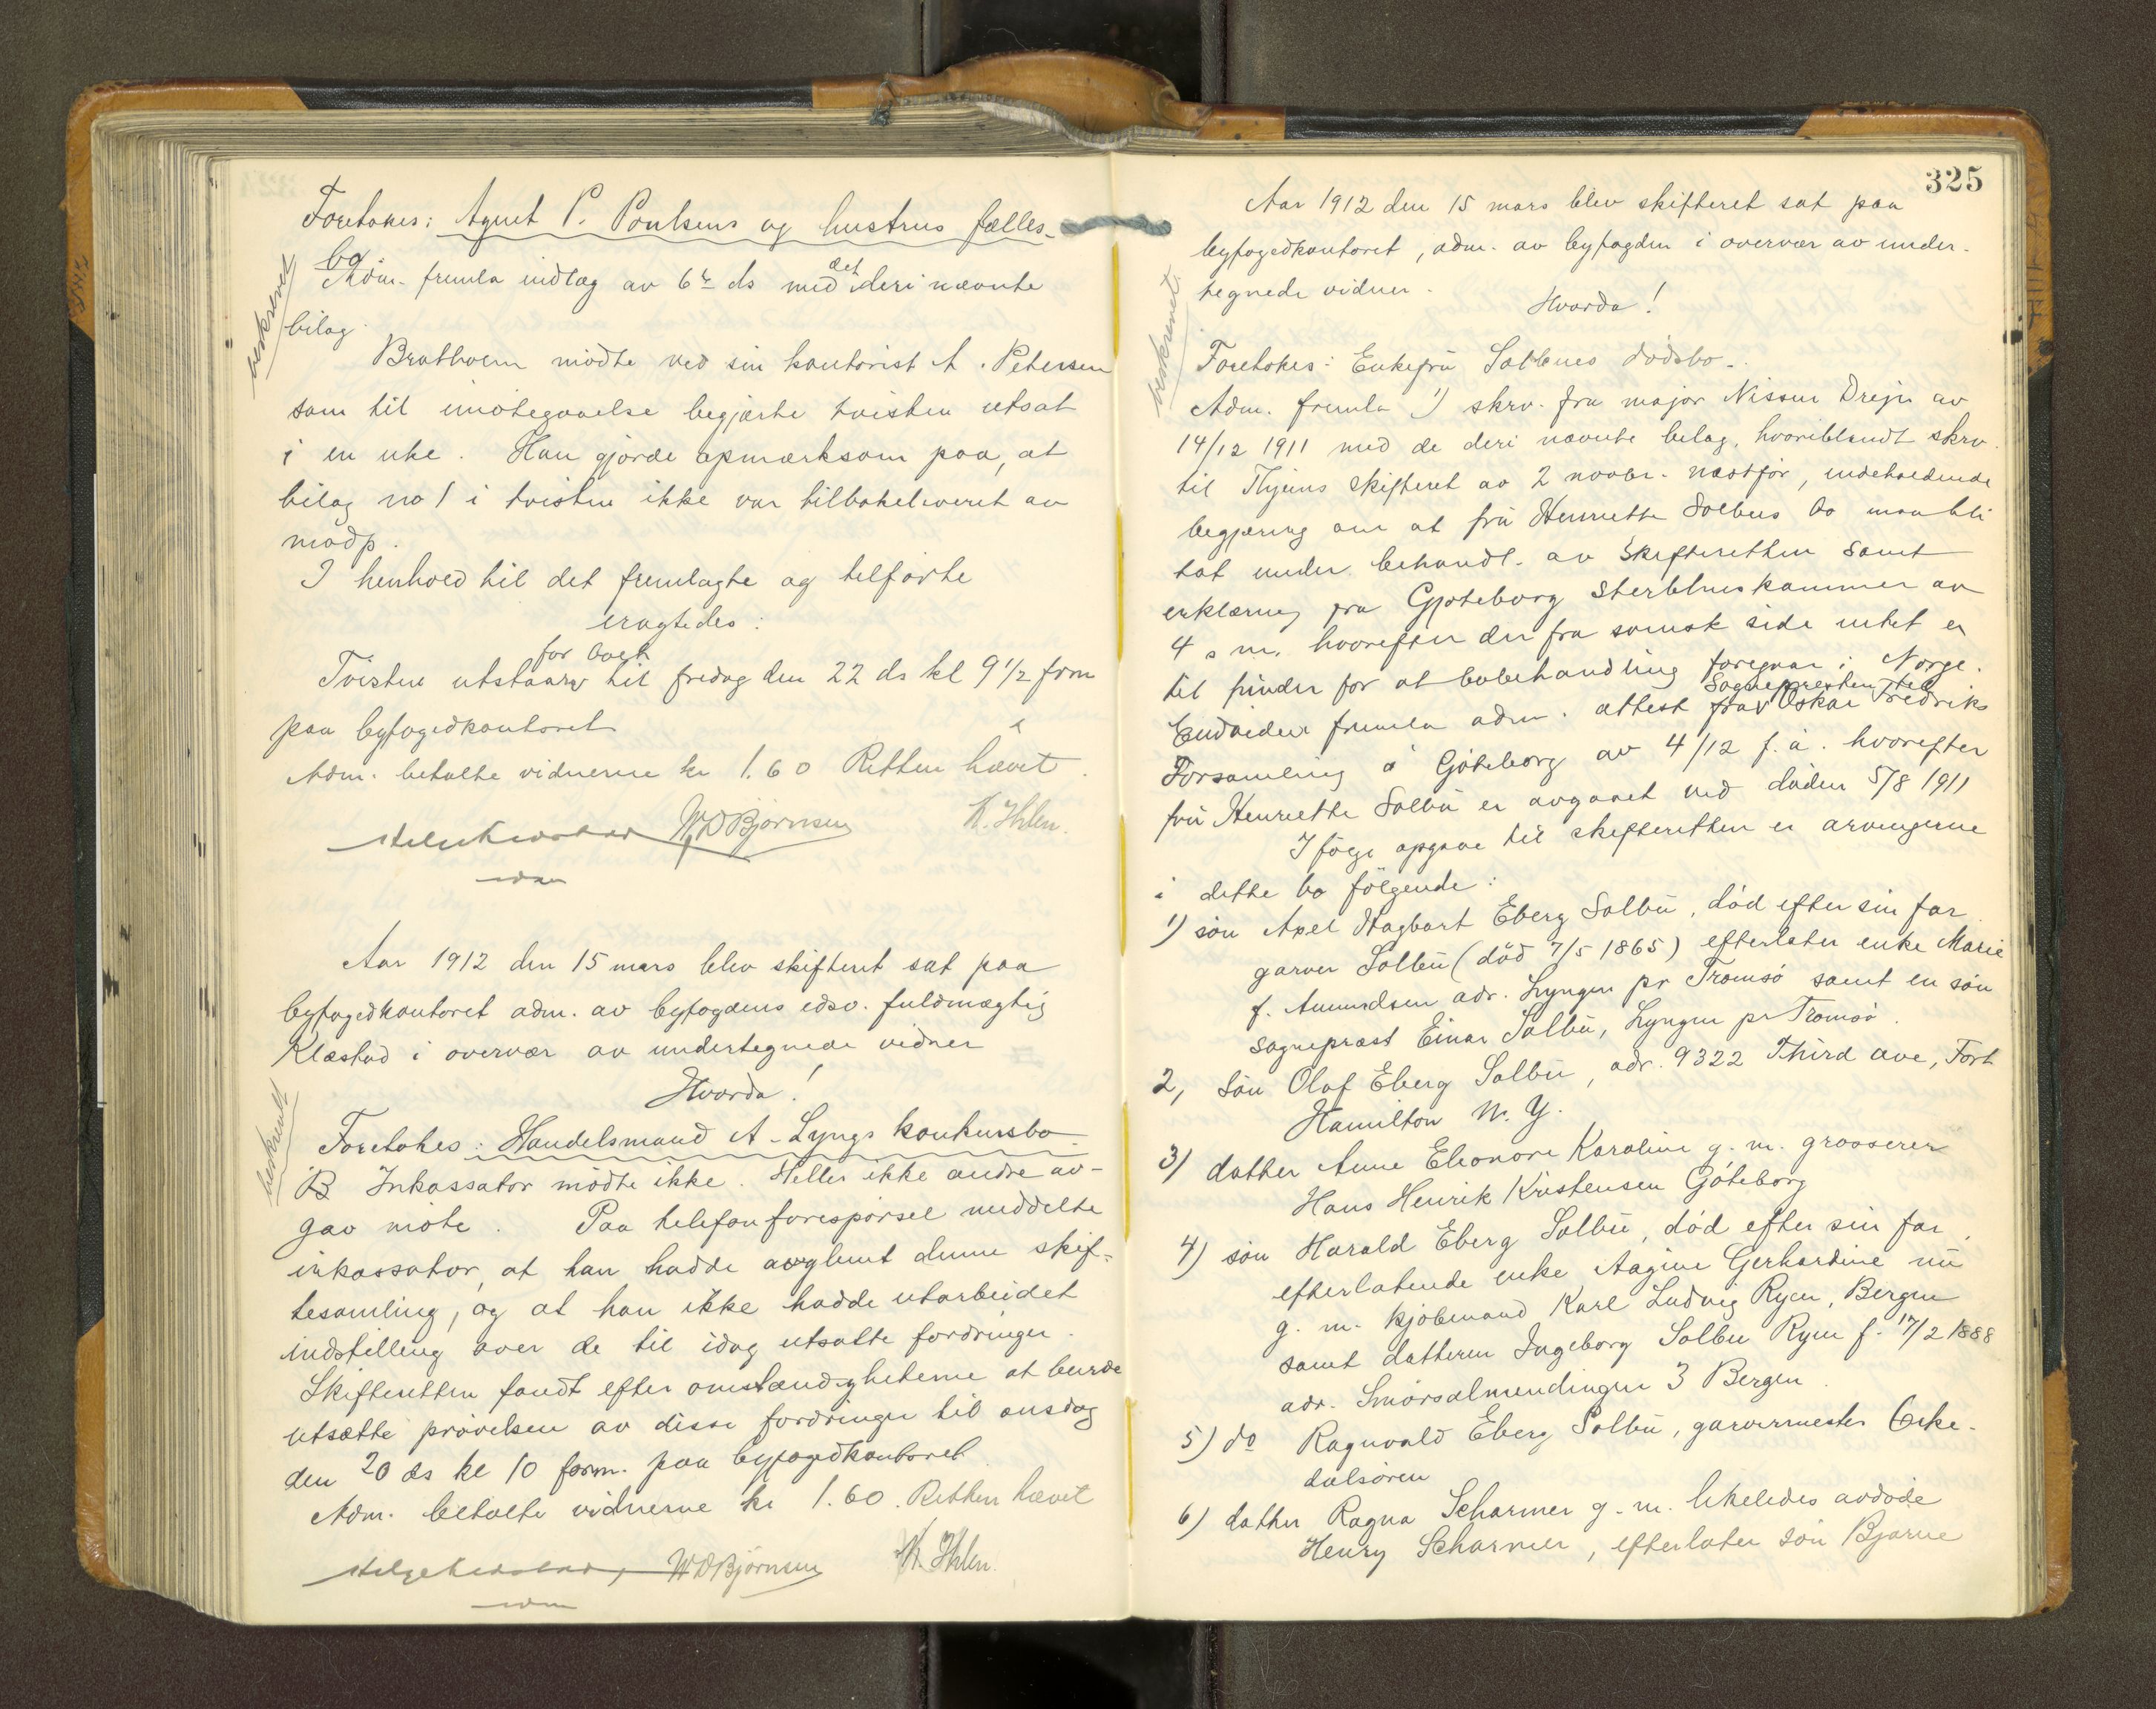 Foretokes: Agent P. Poulsens og hustrus fælles-
bo
Adm. fremla indlæg av 6te ds med det deri nævnte
bilag
beskrevet
Brathoem mødte ved sin kontorist A. Petersen
som til imøtegaaelse begjærte tvisten utsat
i en uke. Han gjorde opmerksom paa, at
bilag no 1 i tvisten ikke var tilbakeleveret av
modp.
I henhold til det fremlagte og tilførte
eragtedes:
Tvisten utstaar for boet til fredag den 22 ds kl 9 1/2 form
paa byfogedkontoret
Adm. betalte vidnerne kr 1.60 Retten hævet.
W D Bjørnsen K. Ihlen.
Aar 1912 den 15 mars blev skifteret sat paa
byfogedkontoret adm. av byfogdens edsv. fuldmægtig
Klæstad i overvær av undertegnede vidner
Hvorda!
beskrevet
Foretokes: Handelsmand A. Lyngs konkursbo.
B Inkassator mødte ikke. Heller ikke andre av-
gav møte. Paa telefonforespørsel meddelte
inkassator, at han hadde avglemt denne skif-
tesamling, og at han ikke hadde utarbeidet
indstilling over de til idag utsatte fordringer.
Skifteretten fandt efter omstændigheterne at burde
utsætte prøvelsen av disse fordringer til onsdag
den 20 ds kl 10 form. paa byfogedkontoret.
Adm. betalte vidnerne kr 1.60. Retten hævet
W D Bjørnsen K. Ihlen.
325
Aar 1912 den 15 mars blev skifteret sat paa
byfogedkontoret, adm. av byfogden i overvær av under-
tegnede vidner.
Hvorda!
beskrevet.
Foretokes: Enkefru Solbues dødsbo.
Adm. fremla 1) skrv. fra major Nissen Drejer av
14/12 1911 med de deri nævnte bilag, hvoriblandt skrv.
til Thjems skifteret av 2 novbr. næstfør, indeholdende
begjæring om at fru Henriette Solbus bo maa bli
tat under behandl. av skifteretten samt
erklæring fra Gjøteborg Sterbhuskammer av
4 s m. hvorefter der fra svensk side intet er
til hinder for at bobehandling foregaar i Norge.
Endvidere fremla adm. attest fra Sognepresten til Oskar Fredriks
Forsamling i Gøteborg av 4/12 f. å. hvorefter
fru Henriette Solbu er avgaaet ved døden 5/8 1911
Ifølge opgave til skifteretten er arvingerne
i dette bo følgende:
1) søn Axel Hagbart Eberg Solbu, død efter sin far
garver Solbu (død 7/5 1865) efterlater enke Marie
f. Amundsen adr. Lyngen pr Tromsø samt en søn
sogneprest Einar Solbu, Lyngen pr Tromsø.
2, søn Olaf Eberg Solbu, adr. 9322 Third ave, Fort
Hamilton N. Y.
3) datter Anne Eleonore Karoline g. m. grosserer
Hans Henrik Kristensen Gøteborg
4) søn Harald Eberg Solbu, død efter sin far,
efterlatende enke Aagine Gerhardine nu
g. m. kjøbmand Karl Ludvig Ryen, Bergen
samt datteren Ingeborg Solbu Ryen f. 17/2 1888
adr. Smørsalmendingen 3 Bergen.
5) do Ragnvald Eberg Solbu, garvermester Orke-
dalsøren
6) datter Ragna Scharmer g. m. likeledes avdøde
Henry Scharmer, efterlater søn Bjarne